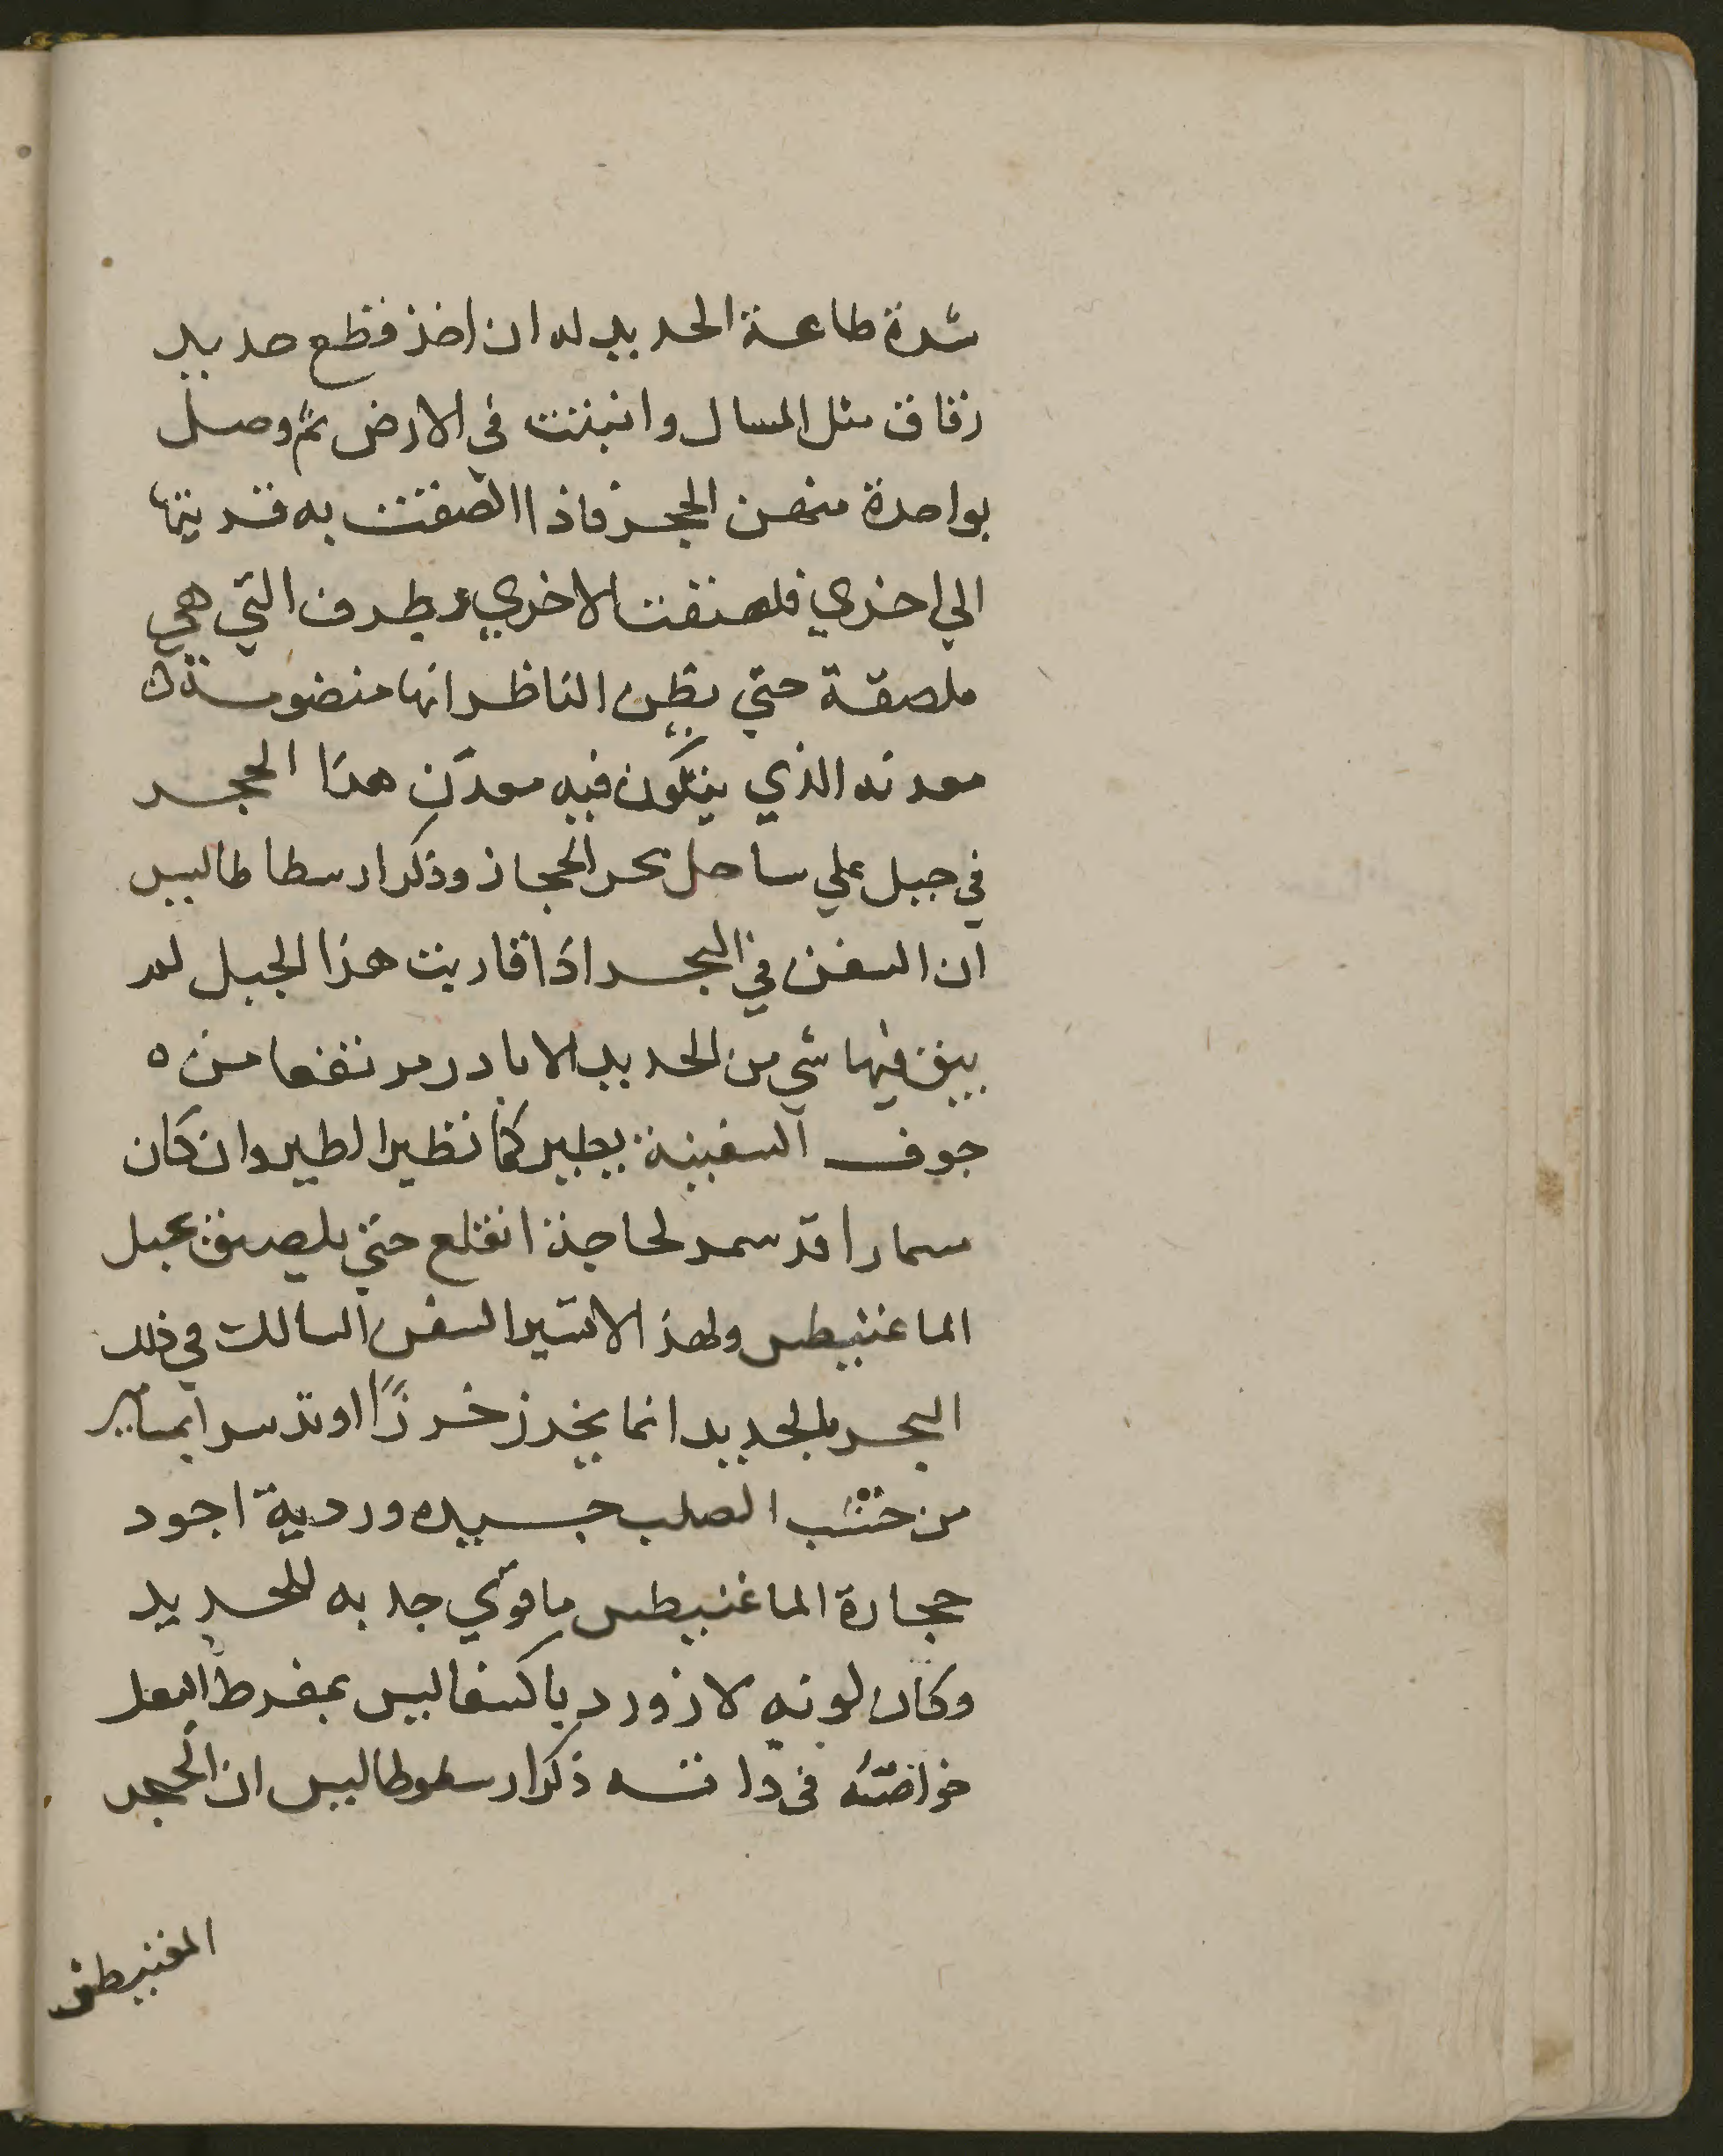 شدة طاعة الحديد له ان اخذ قطع حديد
رقاق مثل المسال وانبتت في الارض ثم وصل
بواحدة منهن الحجر فاذا التصقت به قربتها
الي اخري فلصقت الاخري بطرف التي هي
ملصقة حتي يظن الناظر انها منضومة
معدنه الذي يتكون فيه معدن هذا الحجر
في جبل علي ساحل بحر الحجاز وذكر ارسطاطاليس
ان السفن في البحر اذا قاربت هذا الجبل لم
يبق فيها شي من الحديد الا بادر مرتفعا من ه
جوف السفينة يطير كما تطير الطير وان كان
سمارا قد سمر لحاجة انقلع حتي يلصق بجبل
الماغنيطس ولهذ الاتسير السفن السالك في ذلك
البحر بالحديد انما يخرز خرزًا او تدسر بمسامير
من خشب الصلب جسيده ورديه اجود
حجارة الماغنيطس ما قوي جذبه للحديد
وكان لونه لازورديا كثفا ليس بمفرط الثقل
خواصه في ذاته ذكر ارسطوطاليس ان الحجر
المغنيطس